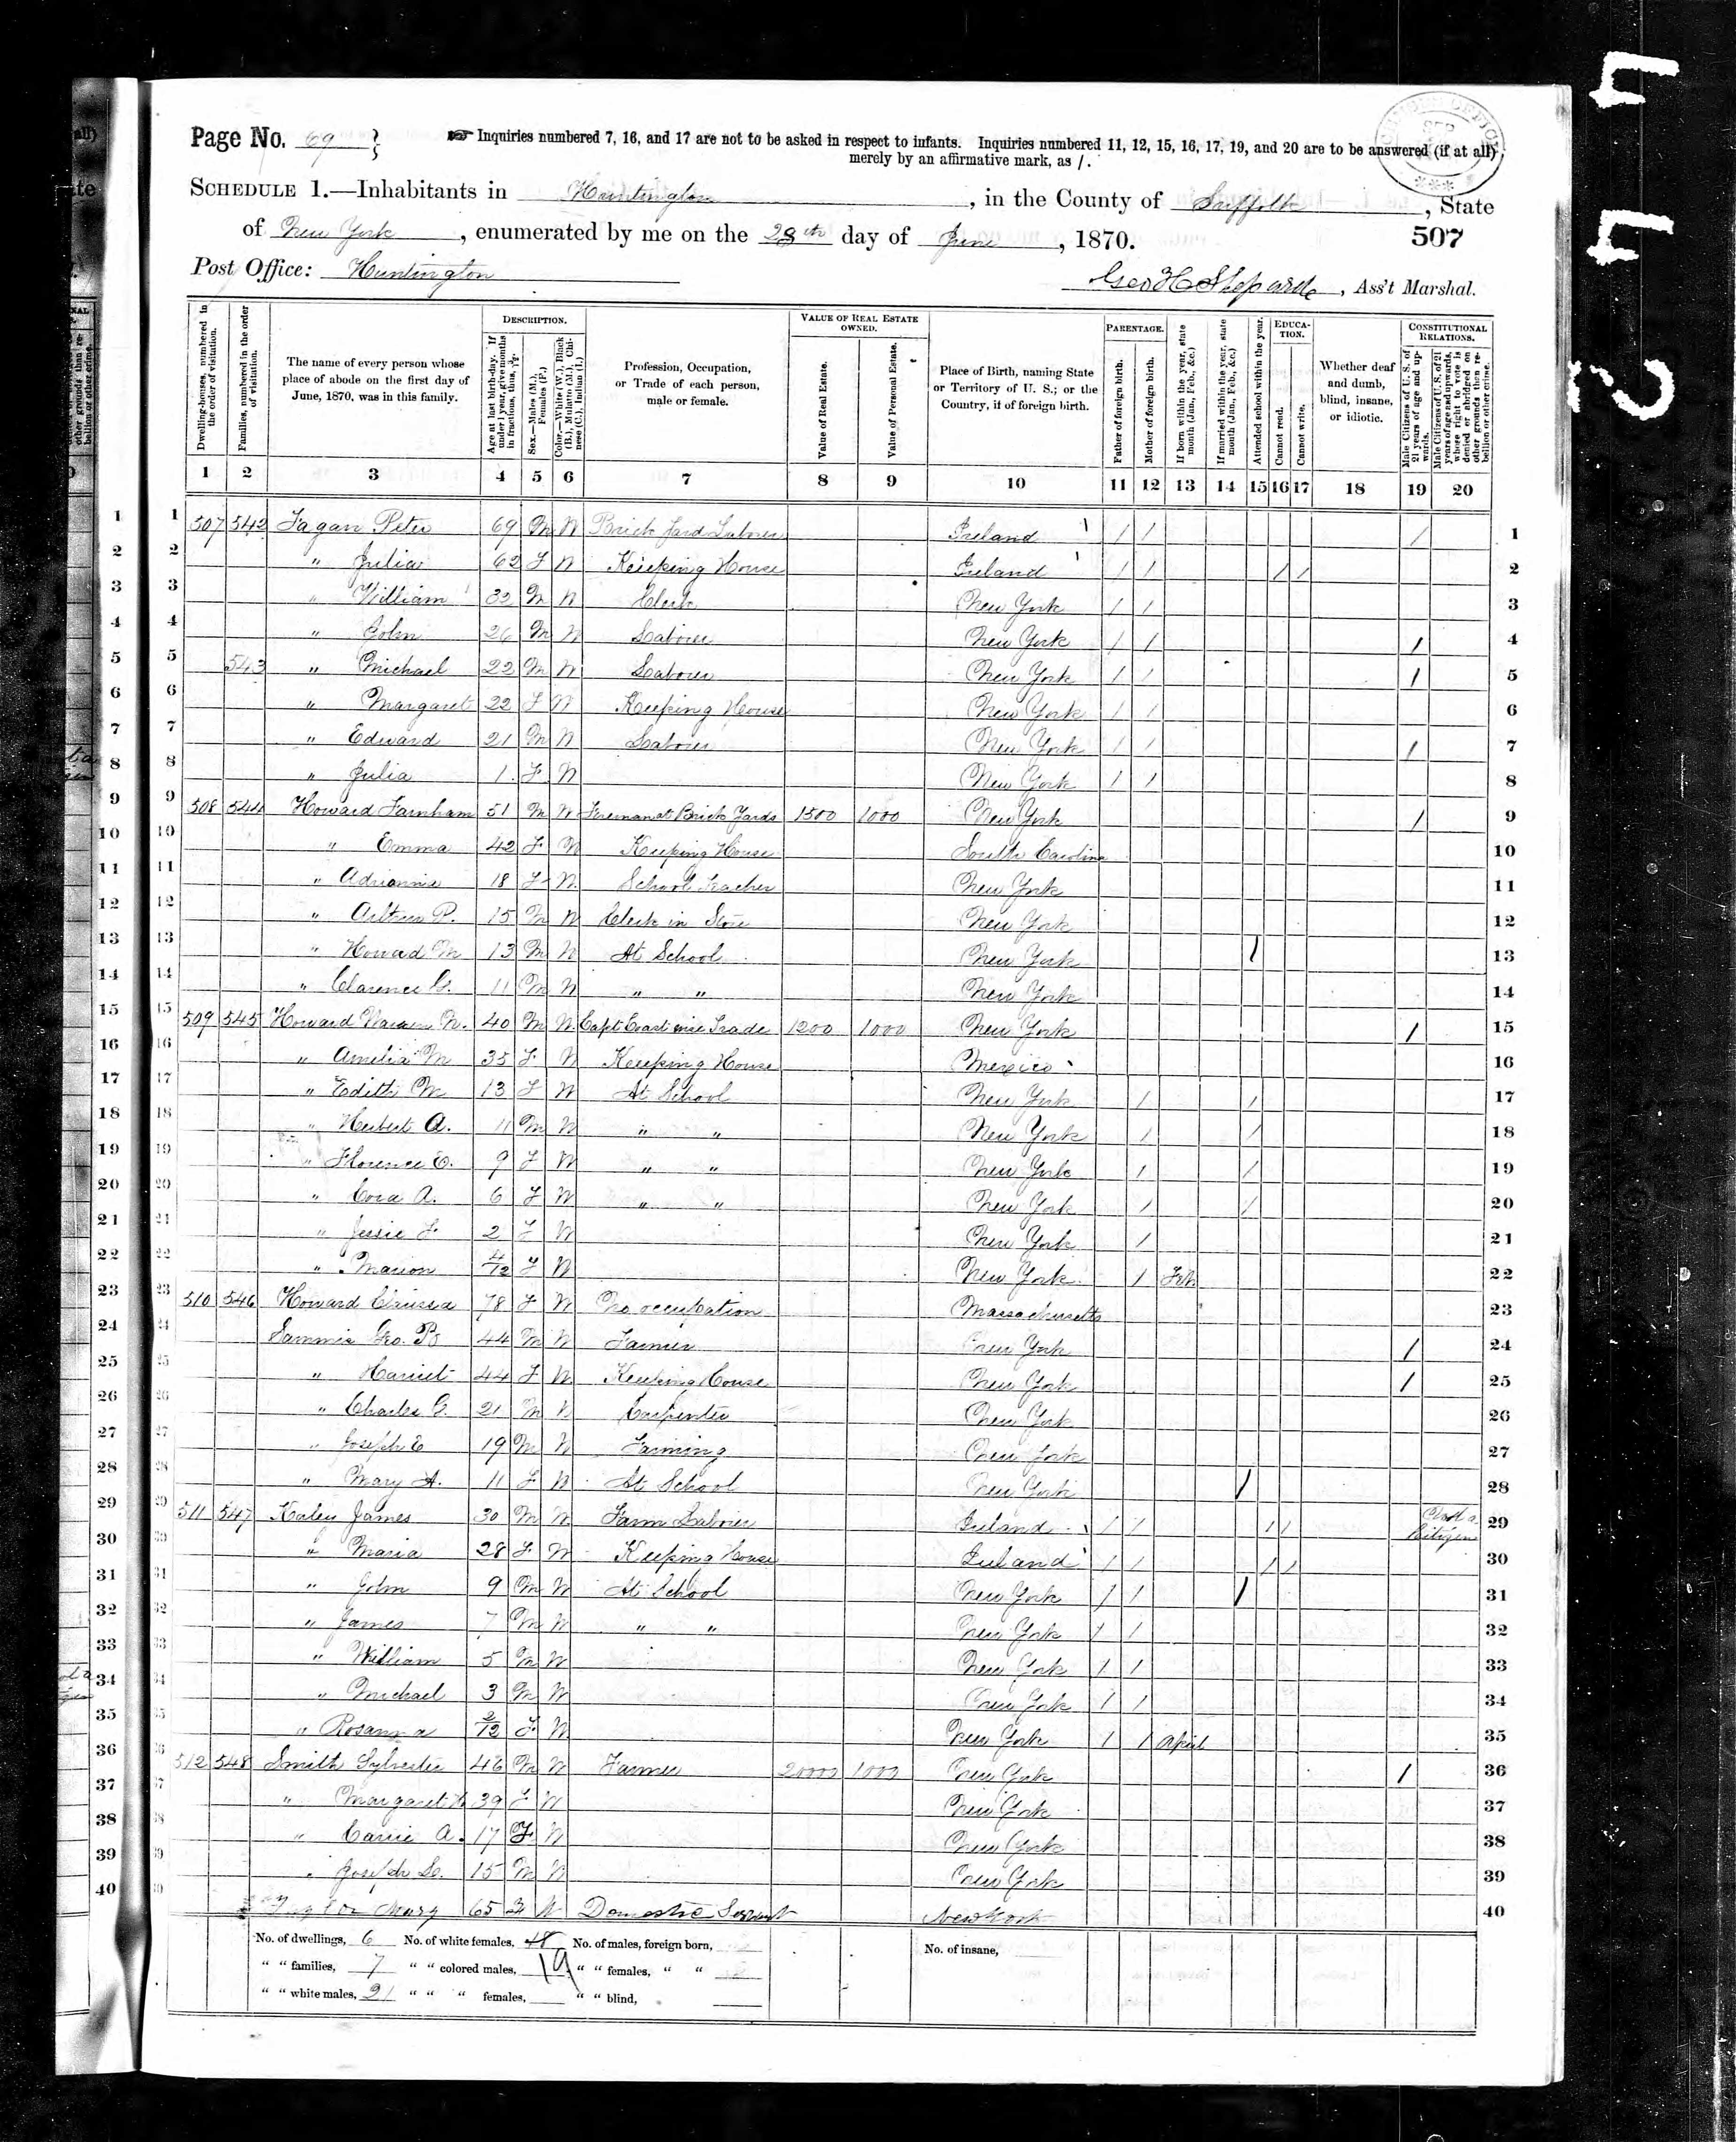 Page No. 69
Inquiries numbered 7, 16, and 17 are not to be asked in respect to infants. Inquiries numbered 11, 12, 15, 16, 17, 19, and 20 are to be answered (if at all)
merely by an affirmative mark, as /.
SCHEDULE 1.—Inhabitants in Huntington, in the County of Suffolk, State
of New York, enumerated by me on the 28th day of June, 1870.
507
Post Office: Huntington
Geo H Shepard, Ass't Marshal.
DESCRIPTION.
VALUE OF REAL ESTATE OWNED.
PARENTAGE.
EDUCATION.
CONSTITUTIONAL RELATIONS.
Dwelling-houses, numbered in the order of visitation.
Families, numbered in the order of visitation.
The name of every person whose place of abode on the first day of June, 1870, was in this family.
Age at last birth-day. If under 1 year, give months in fractions, thus, 3/12.
Sex.—Males (M.), Females (F.)
Color.—White (W.), Black (B.), Mulatto (M.), Chinese (C.), Indian (I.)
Profession, Occupation, or Trade of each person, male or female.
Value of Real Estate.
Value of Personal Estate.
Place of Birth, naming State or Territory of U. S.; or the Country, if of foreign birth.
Father of foreign birth.
Mother of foreign birth.
If born within the year, state month (Jan., Feb., &c.)
If married within the year, state month (Jan., Feb., &c.)
Attended school within the year.
Cannot read.
Cannot write.
Whether deaf and dumb, blind, insane, or idiotic.
Male Citizens of U. S. of 21 years of age and upwards.
Male Citizens of U. S. of 21 years of age and upwards, whose right to vote is denied or abridged on other grounds than rebellion or other crime.
1 2 3 4 5 6 7 8 9 10 11 12 13 14 15 16 17 18 19 20
1 507 542 Fagan Peter 69 M W Brick Yard Laborer Ireland / / / 1
2 " Julia 62 F W Keeping House Ireland / / / / 2
3 " William 32 M W Clerk New York / / 3
4 " John 26 M W Laborer New York / / / 4
5 543 " Michael 22 M W Laborer New York / / / 5
6 " Margaret 22 F W Keeping House New York / / 6
7 " Edward 21 M W Laborer New York / / / 7
8 " Julia 1 F W New York / / 8
9 508 544 Howard Farnham 51 M W Foreman at Brick Yards 1500 1000 New York / 9
10 " Emma 42 F W Keeping House South Carolina 10
11 " Adriannie 18 F W School Teacher New York 11
12 " Arthur P. 15 M W Clerk in Store New York 12
13 " Howard M 13 M W At School New York / 13
14 " Clarence G. 11 M W " " New York 14
15 509 545 Howard 40 M W Capt Coast wise Trade 1200 1000 New York / 15
16 " Amelia M 35 F W Keeping House Mexico 16
17 " Edith M 13 F W At School New York / / 17
18 " Herbert A. 11 M W " " New York / / 18
19 " Florence E. 9 F W " " New York / / 19
20 " Cora A. 6 F W " " New York / / 20
21 " Jessie F. 2 F W New York / 21
22 " Marion 4/12 F W New York / Feb 22
23 510 546 Howard Clarissa 78 F W No occupation Massachusetts 23
24 Sammis Geo. B 44 M W Farmer New York / 24
25 " Harriet 44 F W Keeping House New York / 25
26 " Charles G. 21 M W Carpenter New York 26
27 " Joseph E 19 M W Farming New York 27
28 " Mary A. 11 F W At School New York / 28
29 511 547 Kaley James 30 M W Farm Laborer Ireland / / / / Not a Citizen 29
30 " Maria 28 F W Keeping House Ireland / / / / 30
31 " John 9 M W At School New York / / / 31
32 " James 7 M W " " New York / / 32
33 " William 5 M W New York / / 33
34 " Michael 3 M W New York / / 34
35 " Rosanna 2/12 F W New York / / April 35
36 512 548 Smith Sylvester 46 M W Farmer 20000 1000 New York / 36
37 " Margaret 39 F W New York 37
38 " Carrie A. 17 F W New York 38
39 " Joseph S. 15 M W New York 39
40 Taylor Mary 65 F W Domestic Servant New York 40
No. of dwellings, 6 No. of white females, 18 No. of males, foreign born, No. of insane,
" " families, 7 " " colored males, 19 " " females, " "
" " white males, 21 " " " females, " " blind,